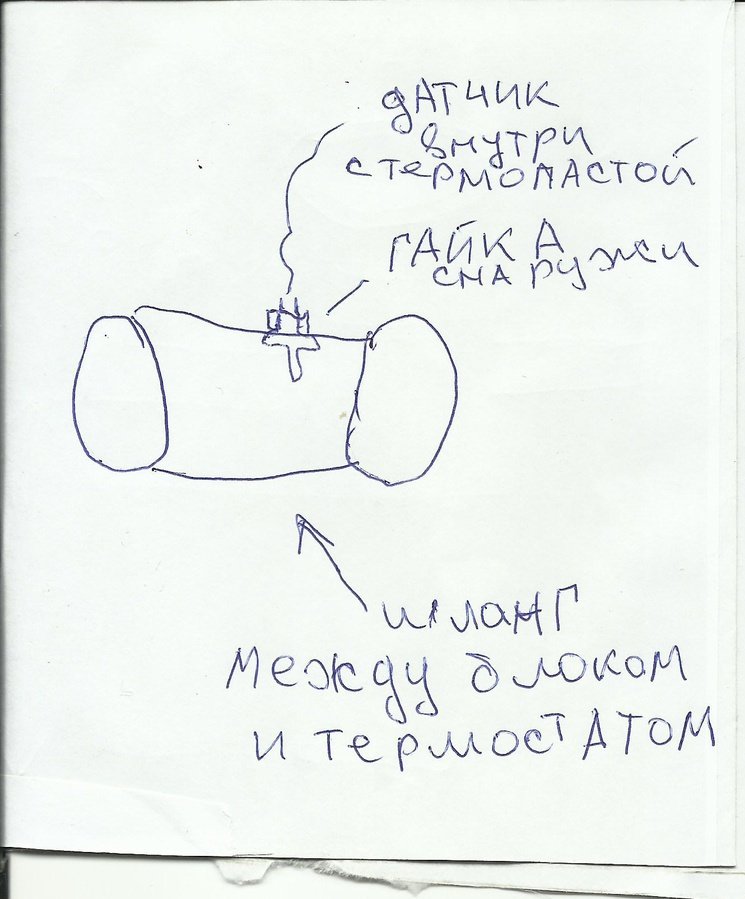 ДАТЧИК
внутри
с термопастой
ГАЙКА
снаружи
шланг
между блоком
и термостатом